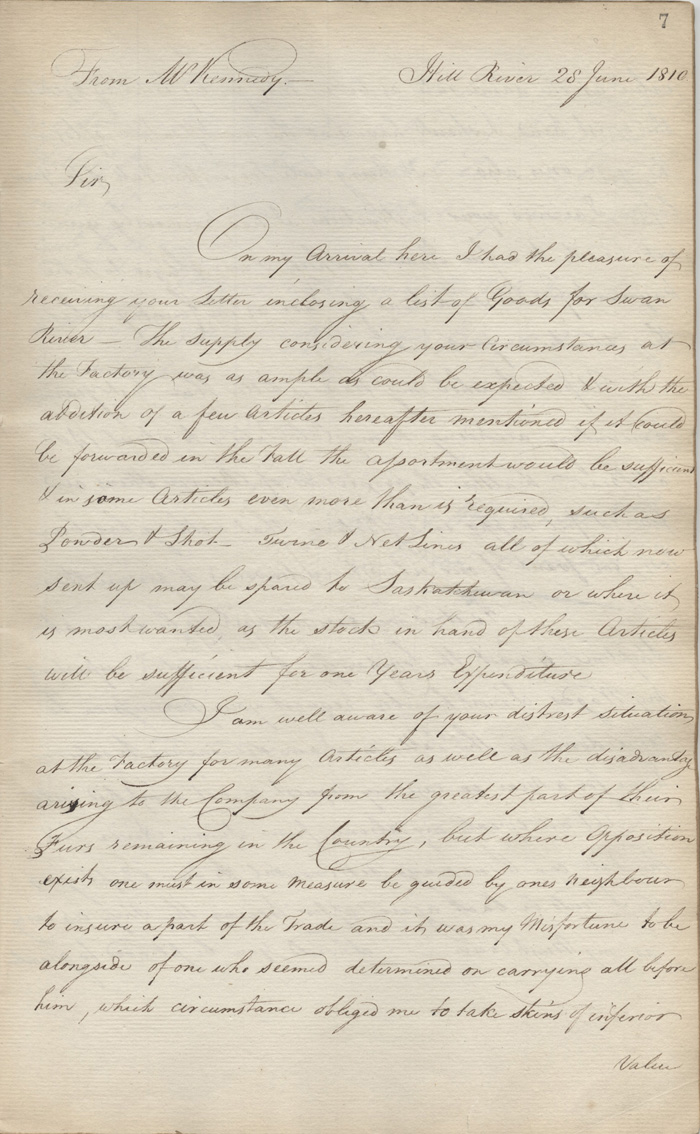 7
From Mr Kennedy. — Hill River 28 June 1810
Sir,
On my Arrival here I had the pleasure of
receiving your Letter inclosing a list of Goods for Swan
River — The supply considering your Circumstances at
the Factory was as ample as could be expected & with the
addition of a few Articles hereafter mentioned if it could
be forwarded in the Fall the assortment would be sufficient
& in some Articles even more than is required, such as
Powder & Shot — Twine & Net Lines all of which now
sent up may be spared to Saskatchewan or where it
is most wanted, as the stock in hand of these Articles
will be sufficient for one Years Expenditure
I am well aware of your distrest situation
at the Factory for many Articles as well as the disadvantage
arising to the Company from the greatest part of their
Furs remaining in the Country, but where Opposition
exists one must in some measure be guided by ones Neighbour
to insure a part of the Trade and it was my Misfortune to be
alongside of one who seemed determined on carrying all before
him, which circumstance obliged me to take skins of inferior
Value